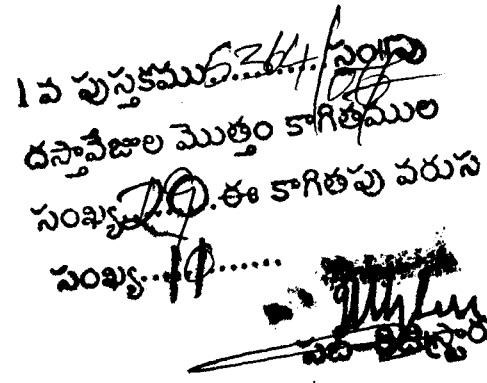 1 వ పుస్తకము 6364/04 సం॥పు
దస్తావేజుల మొత్తం కాగితముల
సంఖ్య....29....ఈ కాగితపు వరుస
సంఖ్య....11......
సబ్ రిజిస్ట్రారు